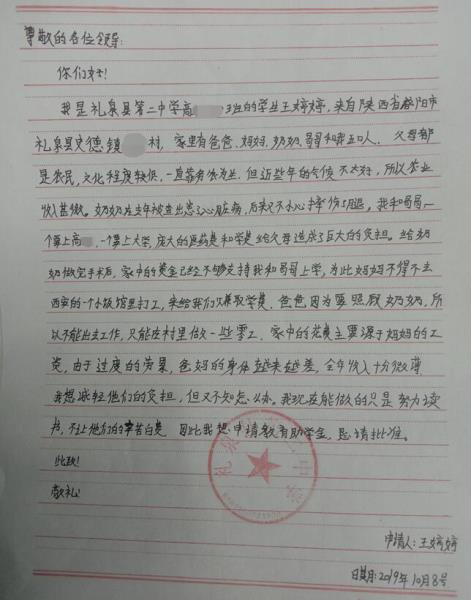 尊敬的各位领导:
你们好!
我是礼泉县第二中学高 班的学生王婷婷,来自陕西省咸阳市
礼泉县史德镇 村,家里有爸爸、妈妈、奶奶、哥哥和我五口人。父母都
是农民,文化程度较低,一直靠务农为生,但近些年的气候不太好,所以农业
收入甚微。奶奶在去年被查出患了心脏病,后来又不小心摔伤了腿。我和哥哥一
个要上高 ,一个要上大学,庞大的医药费和学费给父母造成了巨大的负担。给奶
奶做完手术后,家中的资金已经不能够支持我和哥哥上学,为此妈妈不得不去
西安的一个小饭馆里打工,来给我们 取学费。爸爸因为要照顾奶奶,所
以不能出去工作,只能在村里做一些零工。家中的花费主要源于妈妈的工
资,由于过度的劳累,爸妈的身体越来越差,全年收入十分微薄
我想减轻他们的负担,但又不知怎么办。我现在能做的只是努力读
书,不让他们的辛苦白费。因此我想申请教育助学金,恳请批准。
此致!
敬礼!
申请人:王婷婷
日期:2019年10月8号